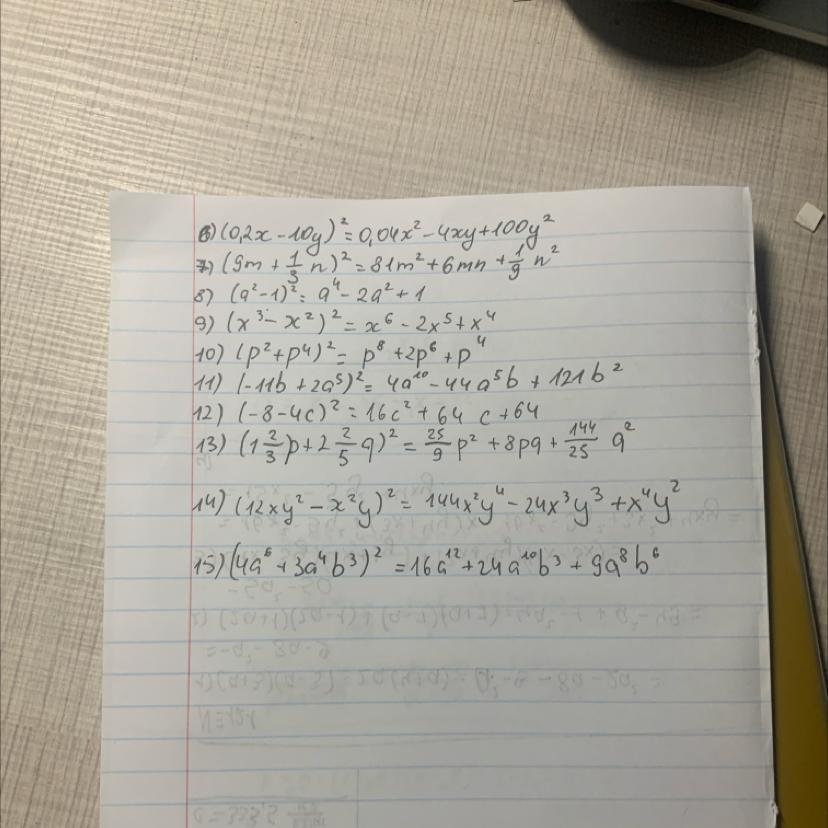 6) (0,2x - 10y)² = 0,04x² - 4xy + 100y²
7) (9m + 1/3 n)² = 81m² + 6mn + 1/9 n²
8) (a² - 1)² = a⁴ - 2a² + 1
9) (x³ - x²)² = x⁶ - 2x⁵ + x⁴
10) (p² + p⁴)² = p⁸ + 2p⁶ + p⁴
11) (-11b + 2a⁵)² = 4a¹⁰ - 44a⁵b + 121b²
12) (-8 - 4c)² = 16c² + 64c + 64
13) (1 2/3 p + 2 2/5 q)² = 25/9 p² + 8pq + 144/25 q²
14) (12xy² - x²y)² = 144x²y⁴ - 24x³y³ + x⁴y²
15) (4a⁶ + 3a⁴b³)² = 16a¹² + 24a¹⁰b³ + 9a⁸b⁶